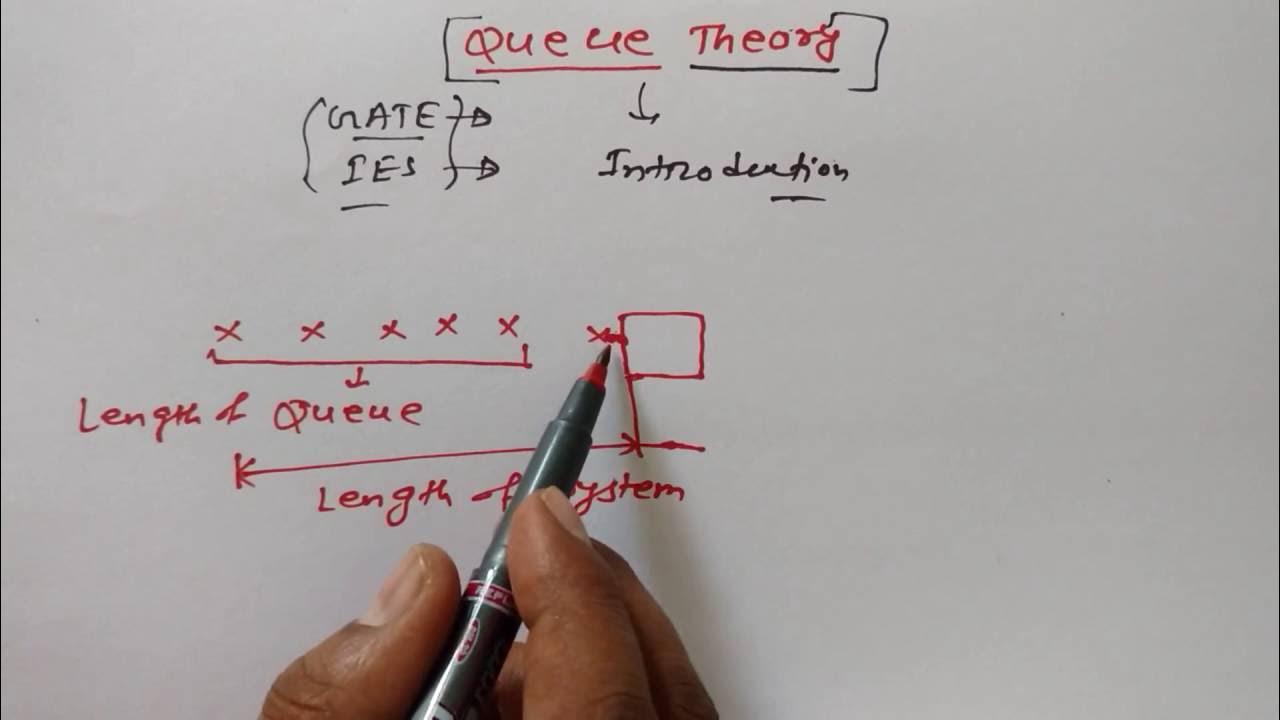 Queue Theory
GATE
IES
Introduction
x x x x x x
Length of Queue
Length of System
REPL